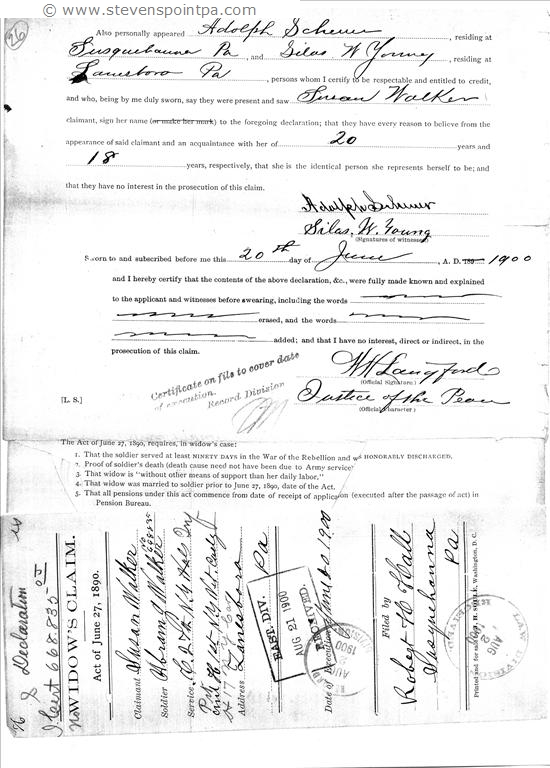 © www.stevenspointpa.com
26
Also personally appeared Adolph Scheuer, residing at
Susquehanna Pa, and Silas W Young, residing at
Lanesboro Pa, persons whom I certify to be respectable and entitled to credit,
and who, being by me duly sworn, say they were present and saw Susan Walker
claimant, sign her name (or make her mark) to the foregoing declaration; that they have every reason to believe from the
appearance of said claimant and an acquaintance with her of 20 years and
18 years, respectively, that she is the identical person she represents herself to be; and
that they have no interest in the prosecution of this claim.
Adolph Scheuer
Silas. W. Young
(Signatures of witnesses)
Sworn to and subscribed before me this 20th day of June, A. D. 189 1900
and I hereby certify that the contents of the above declaration, &c., were fully made known and explained
to the applicant and witnesses before swearing, including the words
erased, and the words
added; and that I have no interest, direct or indirect, in the
prosecution of this claim.
Certificate on file to cover date
of execution.
Record Division
W H Langford
(Official Signature.)
[L. S.]
Justice of the Peace
(Official Character.)
The Act of June 27, 1890, requires, in widow's case:
1. That the soldier served at least NINETY DAYS in the War of the Rebellion and was HONORABLY DISCHARGED.
2. Proof of soldier's death (death cause need not have been due to Army service)
3. That widow is "without other means of support than her daily labor."
4. That widow was married to soldier prior to June 27, 1890, date of the Act.
5. That all pensions under this act commence from date of receipt of application (executed after the passage of act) in
Pension Bureau.
Declaration
Cert 668.835
WIDOW'S CLAIM.
Act of June 27, 1890.
Claimant Susan Walker
Soldier Abram Walker
Service
Address Lanesboro
Pa
EAST. DIV.
AUG 21 1900
RECEIVED.
Date of Execution June 20 1900
Filed by
Robert H Hall
Susquehanna
Pa
Printed and for sale by H. Washington, D. C.